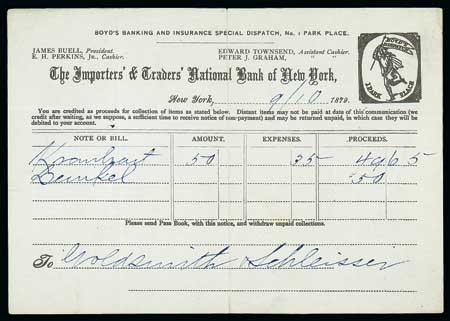 BOYD'S BANKING AND INSURANCE SPECIAL DISPATCH, No. 1 PARK PLACE.
JAMES BUELL, President. EDWARD TOWNSEND, Assistant Cashier.
E. H. PERKINS, Jr., Cashier. PETER J. GRAHAM, " "
BOYD'S DISPATCH
1 PARK PLACE
The Importers' & Traders' National Bank of New York,
New York, 9/10 1879.
You are credited as proceeds for collection of items as stated below. Distant items may not be paid at date of this communication (we
credit after waiting, as we suppose, a sufficient time to receive notice of non-payment) and may be returned unpaid, in which case they will be
debited to your account.
NOTE OR BILL. AMOUNT. EXPENSES. PROCEEDS.
50 35 49 65
Deinkel 50
Please send Pass Book, with this notice, and withdraw unpaid collections.
To Goldsmith & Schleisser